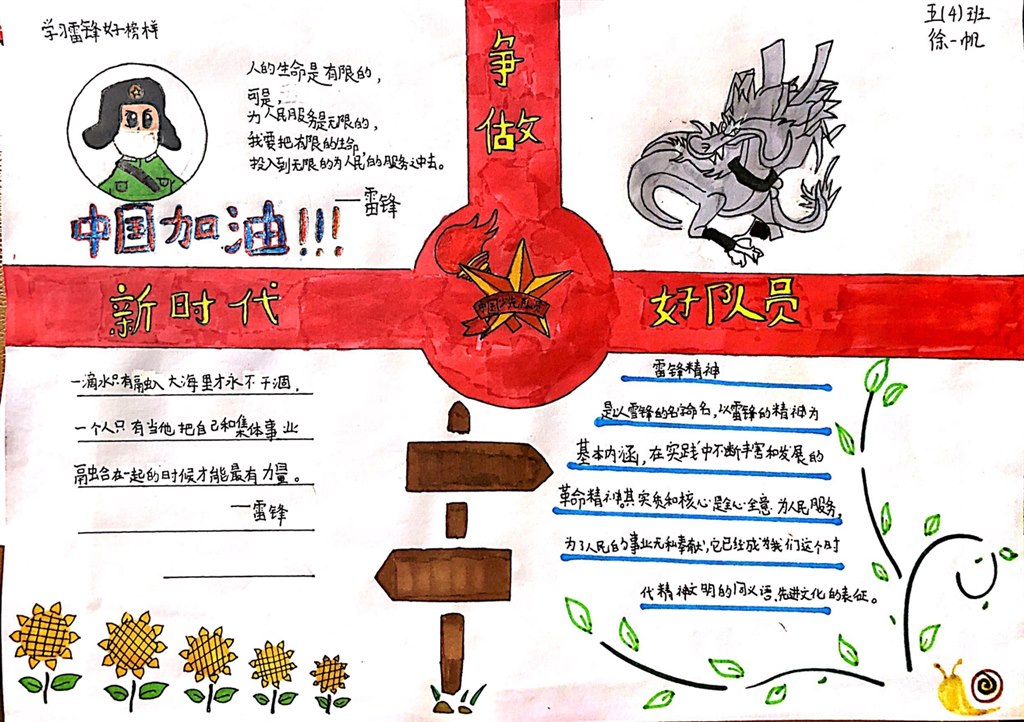 学习雷锋好榜样
五(4)班
徐一帆
人的生命是有限的，
可是，
为人民服务是无限的，
我要把有限的生命
投入到无限的为人民的服务之中去。
—雷锋
中国加油!!!
争做
新时代
好队员
中国少先队
一滴水只有融入大海里才永不干涸.
一个人只有当他把自己和集体事业
融合在一起的时候才能最有力量。
—雷锋
雷锋精神
是以雷锋的名命名,以雷锋的精神为
基本内涵,在实践中不断丰富和发展的
革命精神其实质和核心是全心全意为人民服务,
为了人民的事业无私奉献,它已经成为我们这个时
代精神文明的同义语、先进文化的表征。